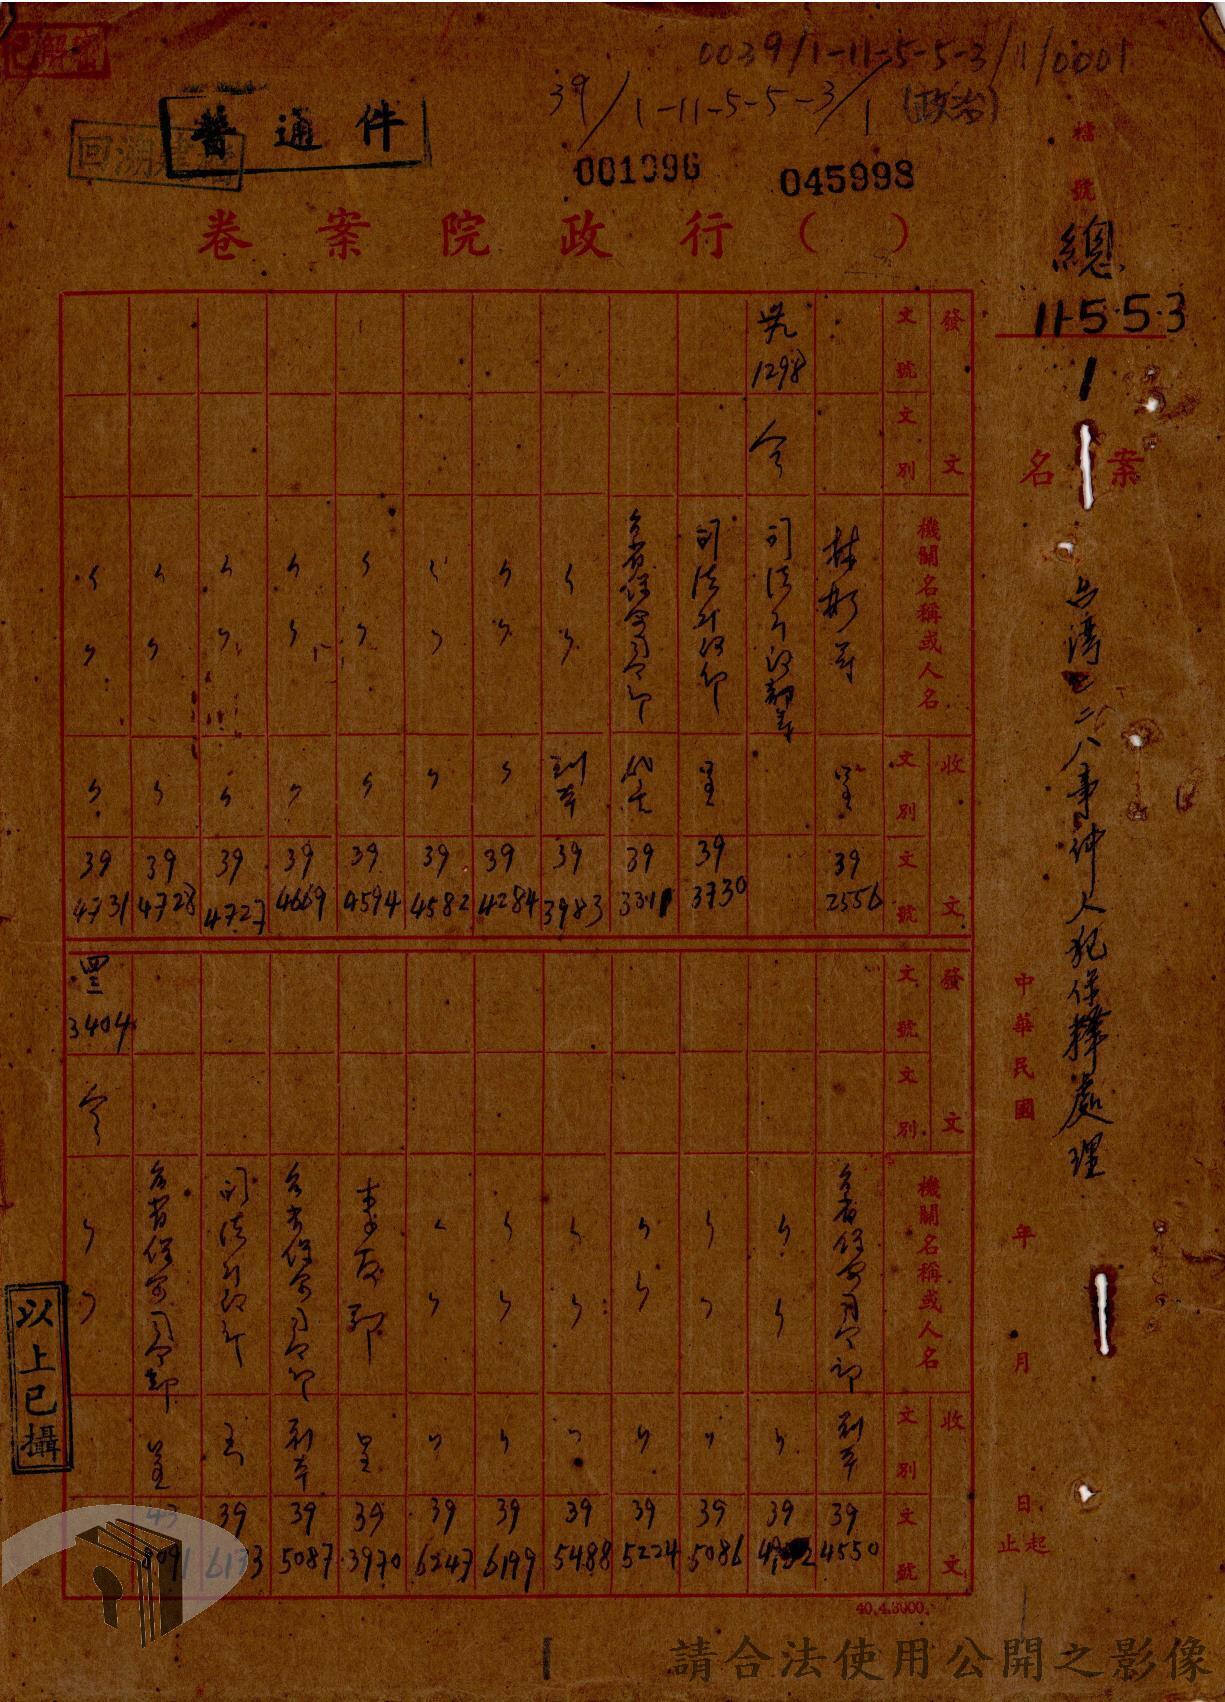 已解密
0039/1-11-5-5-3/1/0001
39/1-11-5-5-3/1 (政治)
普通件
回溯建檔
001096
045998
檔號
總
11-5·5·3
1
行政院案卷（ ）
案名
台灣二二八事件人犯保釋處理
中華民國
年
月
日
起止
發文
文號
文別
機關名稱或人名
收文
文別
文號
林彬等
呈
39
2556
卅九
1298
令
司法行政部等
司法行政部
呈
39
3730
台省保安司令部
代電
39
3311
〃
〃
副本
39
3983
〃
〃
〃
39
4284
〃
〃
〃
39
4582
〃
〃
〃
39
4594
〃
〃
〃
39
4669
〃
〃
〃
39
4727
〃
〃
〃
39
4728
〃
〃
〃
39
4731
發文
文號
文別
機關名稱或人名
收文
文別
文號
台省保安司令部
副本
39
4550
〃
〃
〃
39
〃
〃
〃
39
5086
〃
〃
〃
39
5224
〃
〃
〃
39
5488
〃
〃
〃
39
6199
〃
〃
〃
39
6247
李友邦
呈
39
3970
台省保安司令部
副本
39
5087
司法行政部
39
6133
台省保安司令部
呈
43
8091
四三
3404
令
〃
〃
以上已攝
40.4.3000.
請合法使用公開之影像